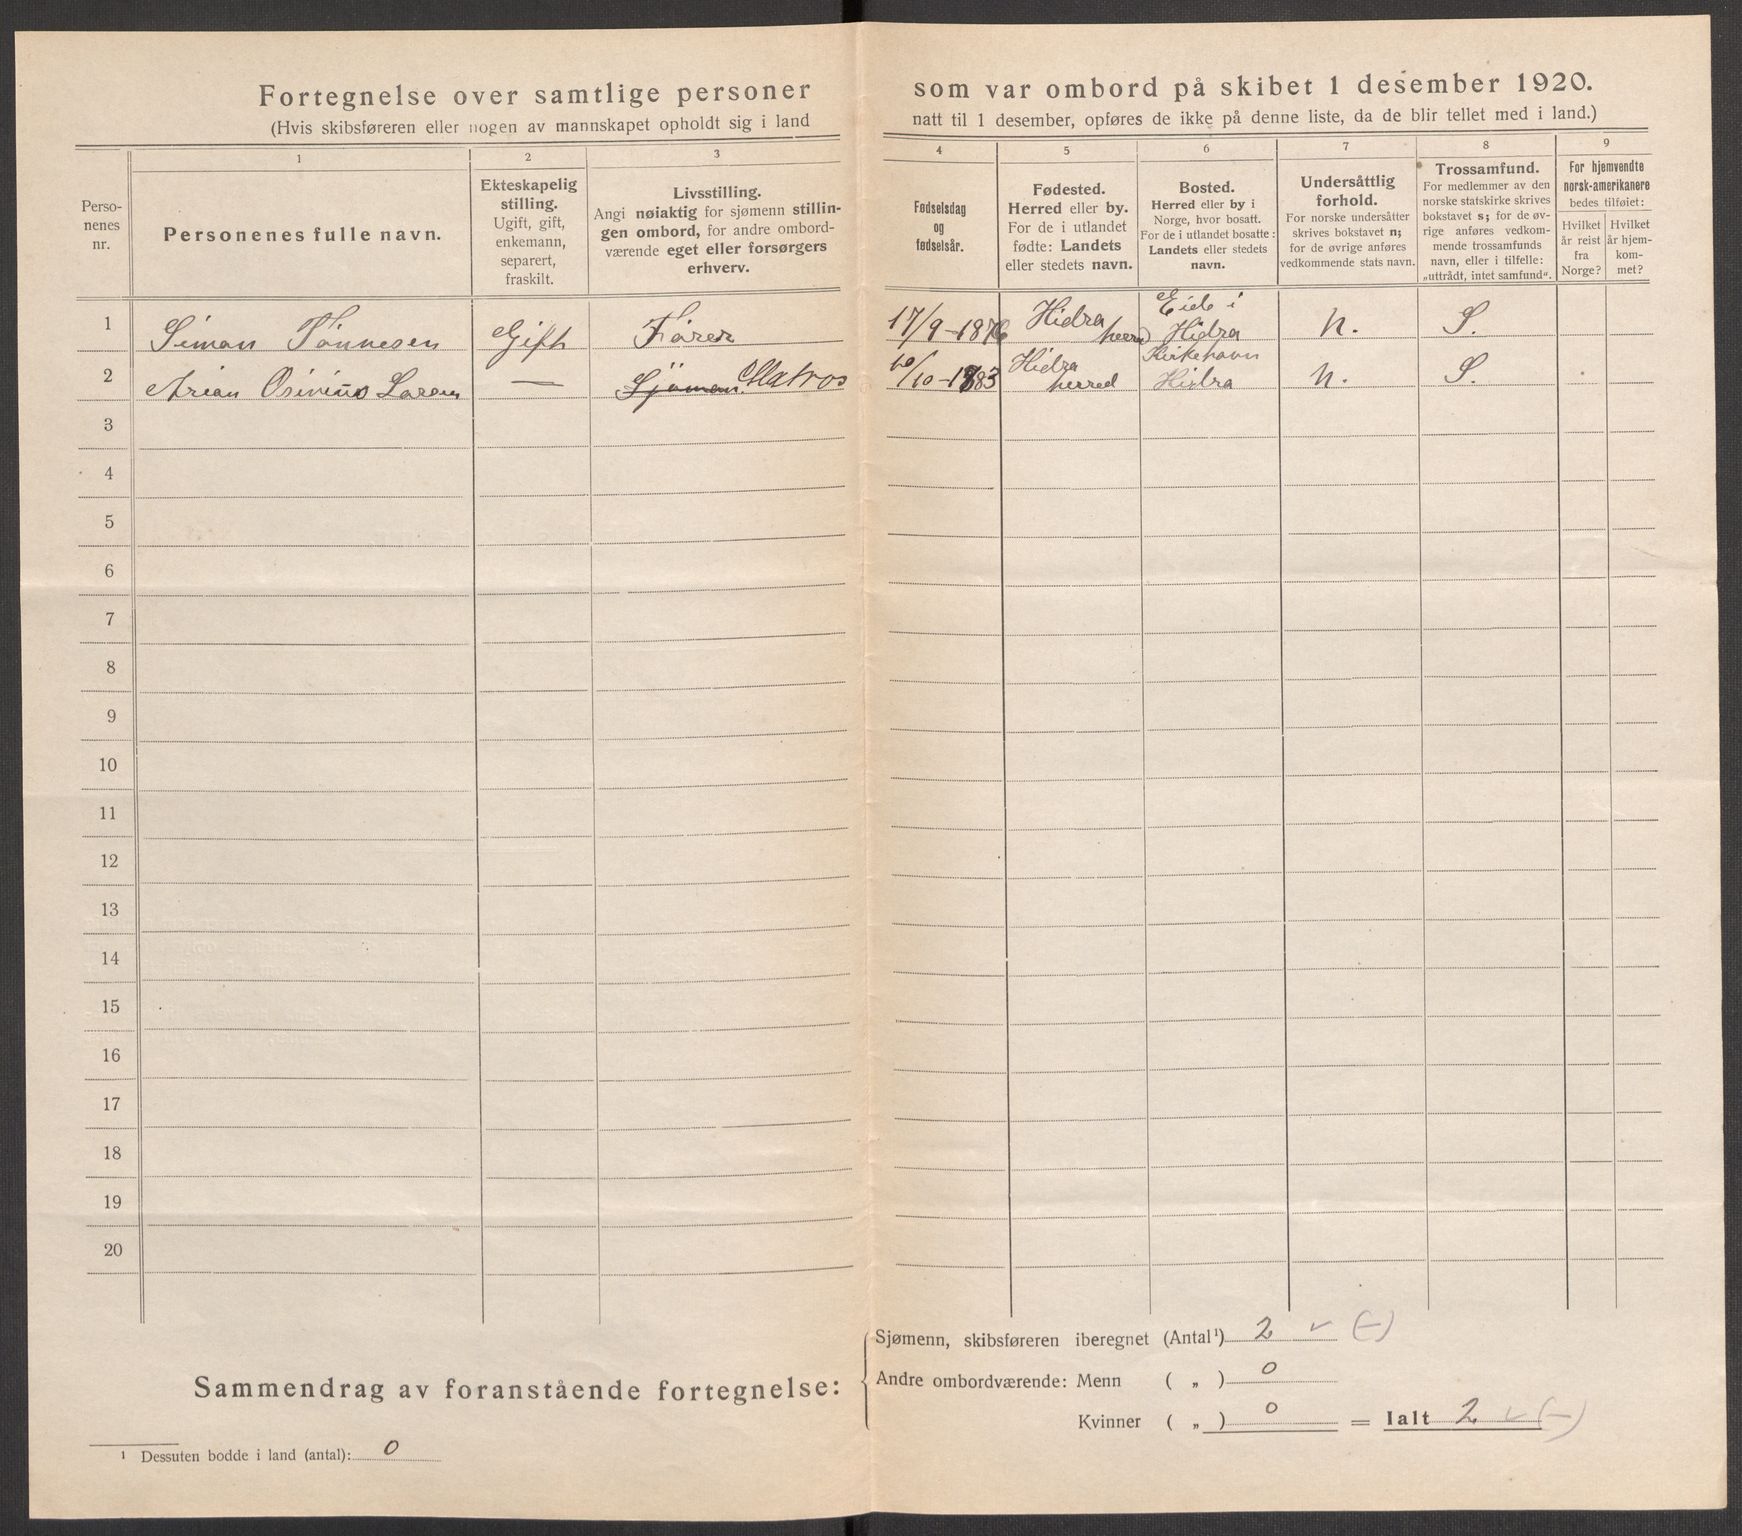 Fortegnelse over samtlige personer som var ombord på skibet 1 desember 1920.
(Hvis skibsføreren eller nogen av mannskapet opholdt sig i land natt til 1 desember, opføres de ikke på denne liste, da de blir tellet med i land.)
Perso-
nenes
nr.
1
Personenes fulle navn.
2
Ekteskapelig
stilling.
Ugift, gift,
enkemann,
separert,
fraskilt.
3
Livsstilling.
Angi nøiaktig for sjømenn stillin-
gen ombord, for andre ombord-
værende eget eller forsørgers
erhverv.
4
Fødselsdag
og
fødselsår.
5
Fødested.
Herred eller by.
For de i utlandet
fødte: Landets
eller stedets navn.
6
Bosted.
Herred eller by i
Norge, hvor bosatt.
For de i utlandet bosatte:
Landets eller stedets
navn.
7
Undersåttlig
forhold.
For norske undersåtter
skrives bokstavet n;
for de øvrige anføres
vedkommende stats navn.
8
Trossamfund.
For medlemmer av den
norske statskirke skrives
bokstavet s; for de øv-
rige anføres vedkom-
mende trossamfunds
navn, eller i tilfelle:
„uttrådt, intet samfund".
9
For hjemvendte
norsk-amerikanere
bedes tilføiet:
Hvilket
år reist
fra
Norge?
Hvilket
år hjem-
kom-
met?
1 Simon Tönnesen Gift Förer 17/9-1876 Hidra herred Eide i Hidra n. S.
2 Arian Larsen — Sjöman Matros 10/10-1883 Hidra herred Kirkehavn Hidra n. S.
3
4
5
6
7
8
9
10
11
12
13
14
15
16
17
18
19
20
Sammendrag av foranstående fortegnelse:
Sjømenn, skibsføreren iberegnet (Antal¹) 2 ✓ (—)
Andre ombordværende: Menn ( „ ) 0
Kvinner ( „ ) 0 = Ialt 2 ✓ (—)
¹ Dessuten bodde i land (antal): 0